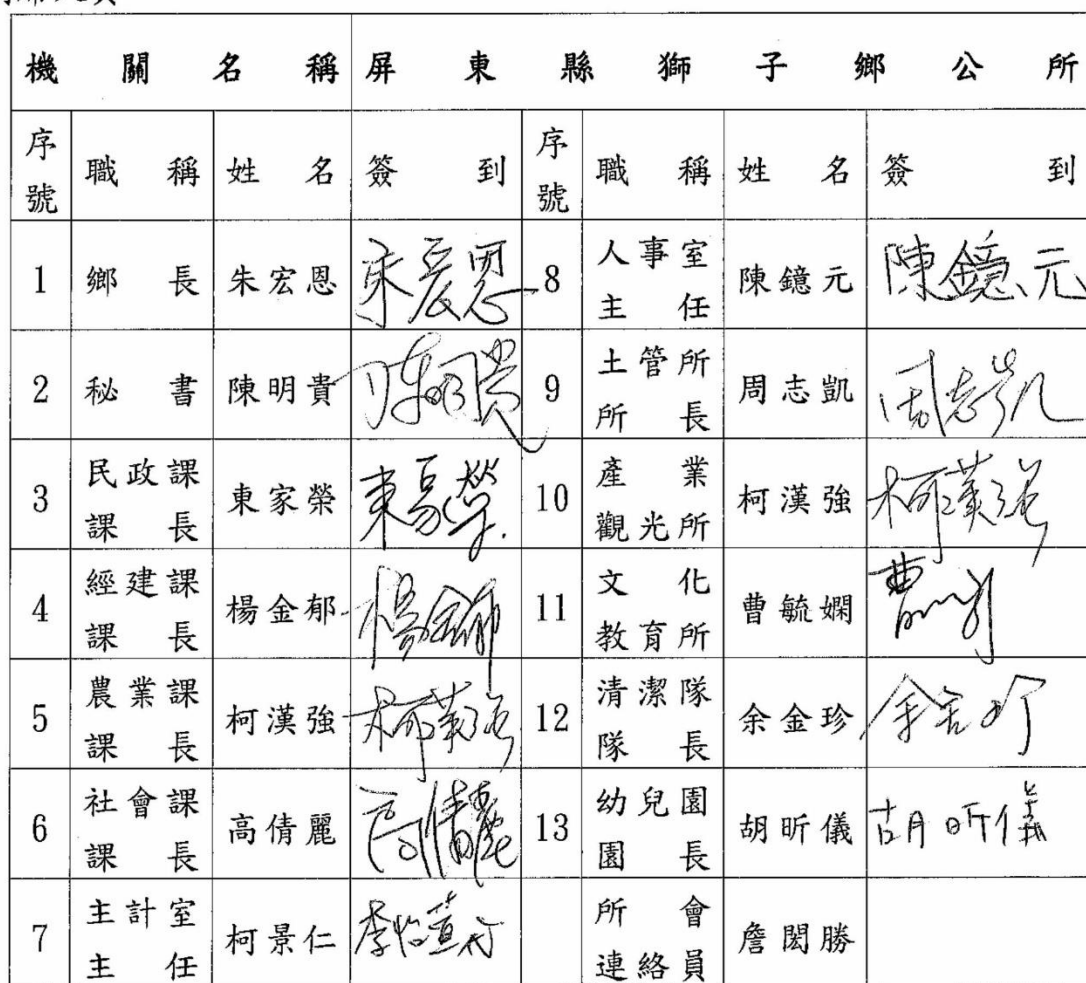 機關名稱 屏東縣獅子鄉公所
序號 職稱 姓名 簽到 序號 職稱 姓名 簽到
1 鄉長 朱宏恩 朱宏恩 8 人事室主任 陳鐿元 陳鐿元
2 秘書 陳明貴 陳明貴 9 土管所所長 周志凱 周志凱
3 民政課課長 東家榮 東家榮 10 產業觀光所 柯漢強 柯漢強
4 經建課課長 楊金郁 楊金郁 11 文化教育所 曹毓嫻 曹
5 農業課課長 柯漢強 柯漢強 12 清潔隊隊長 余金珍 余金珍
6 社會課課長 高倩麗 高倩麗 13 幼兒園園長 胡昕儀 胡昕儀
7 主計室主任 柯景仁 李怡萱代 所會連絡員 詹閎勝